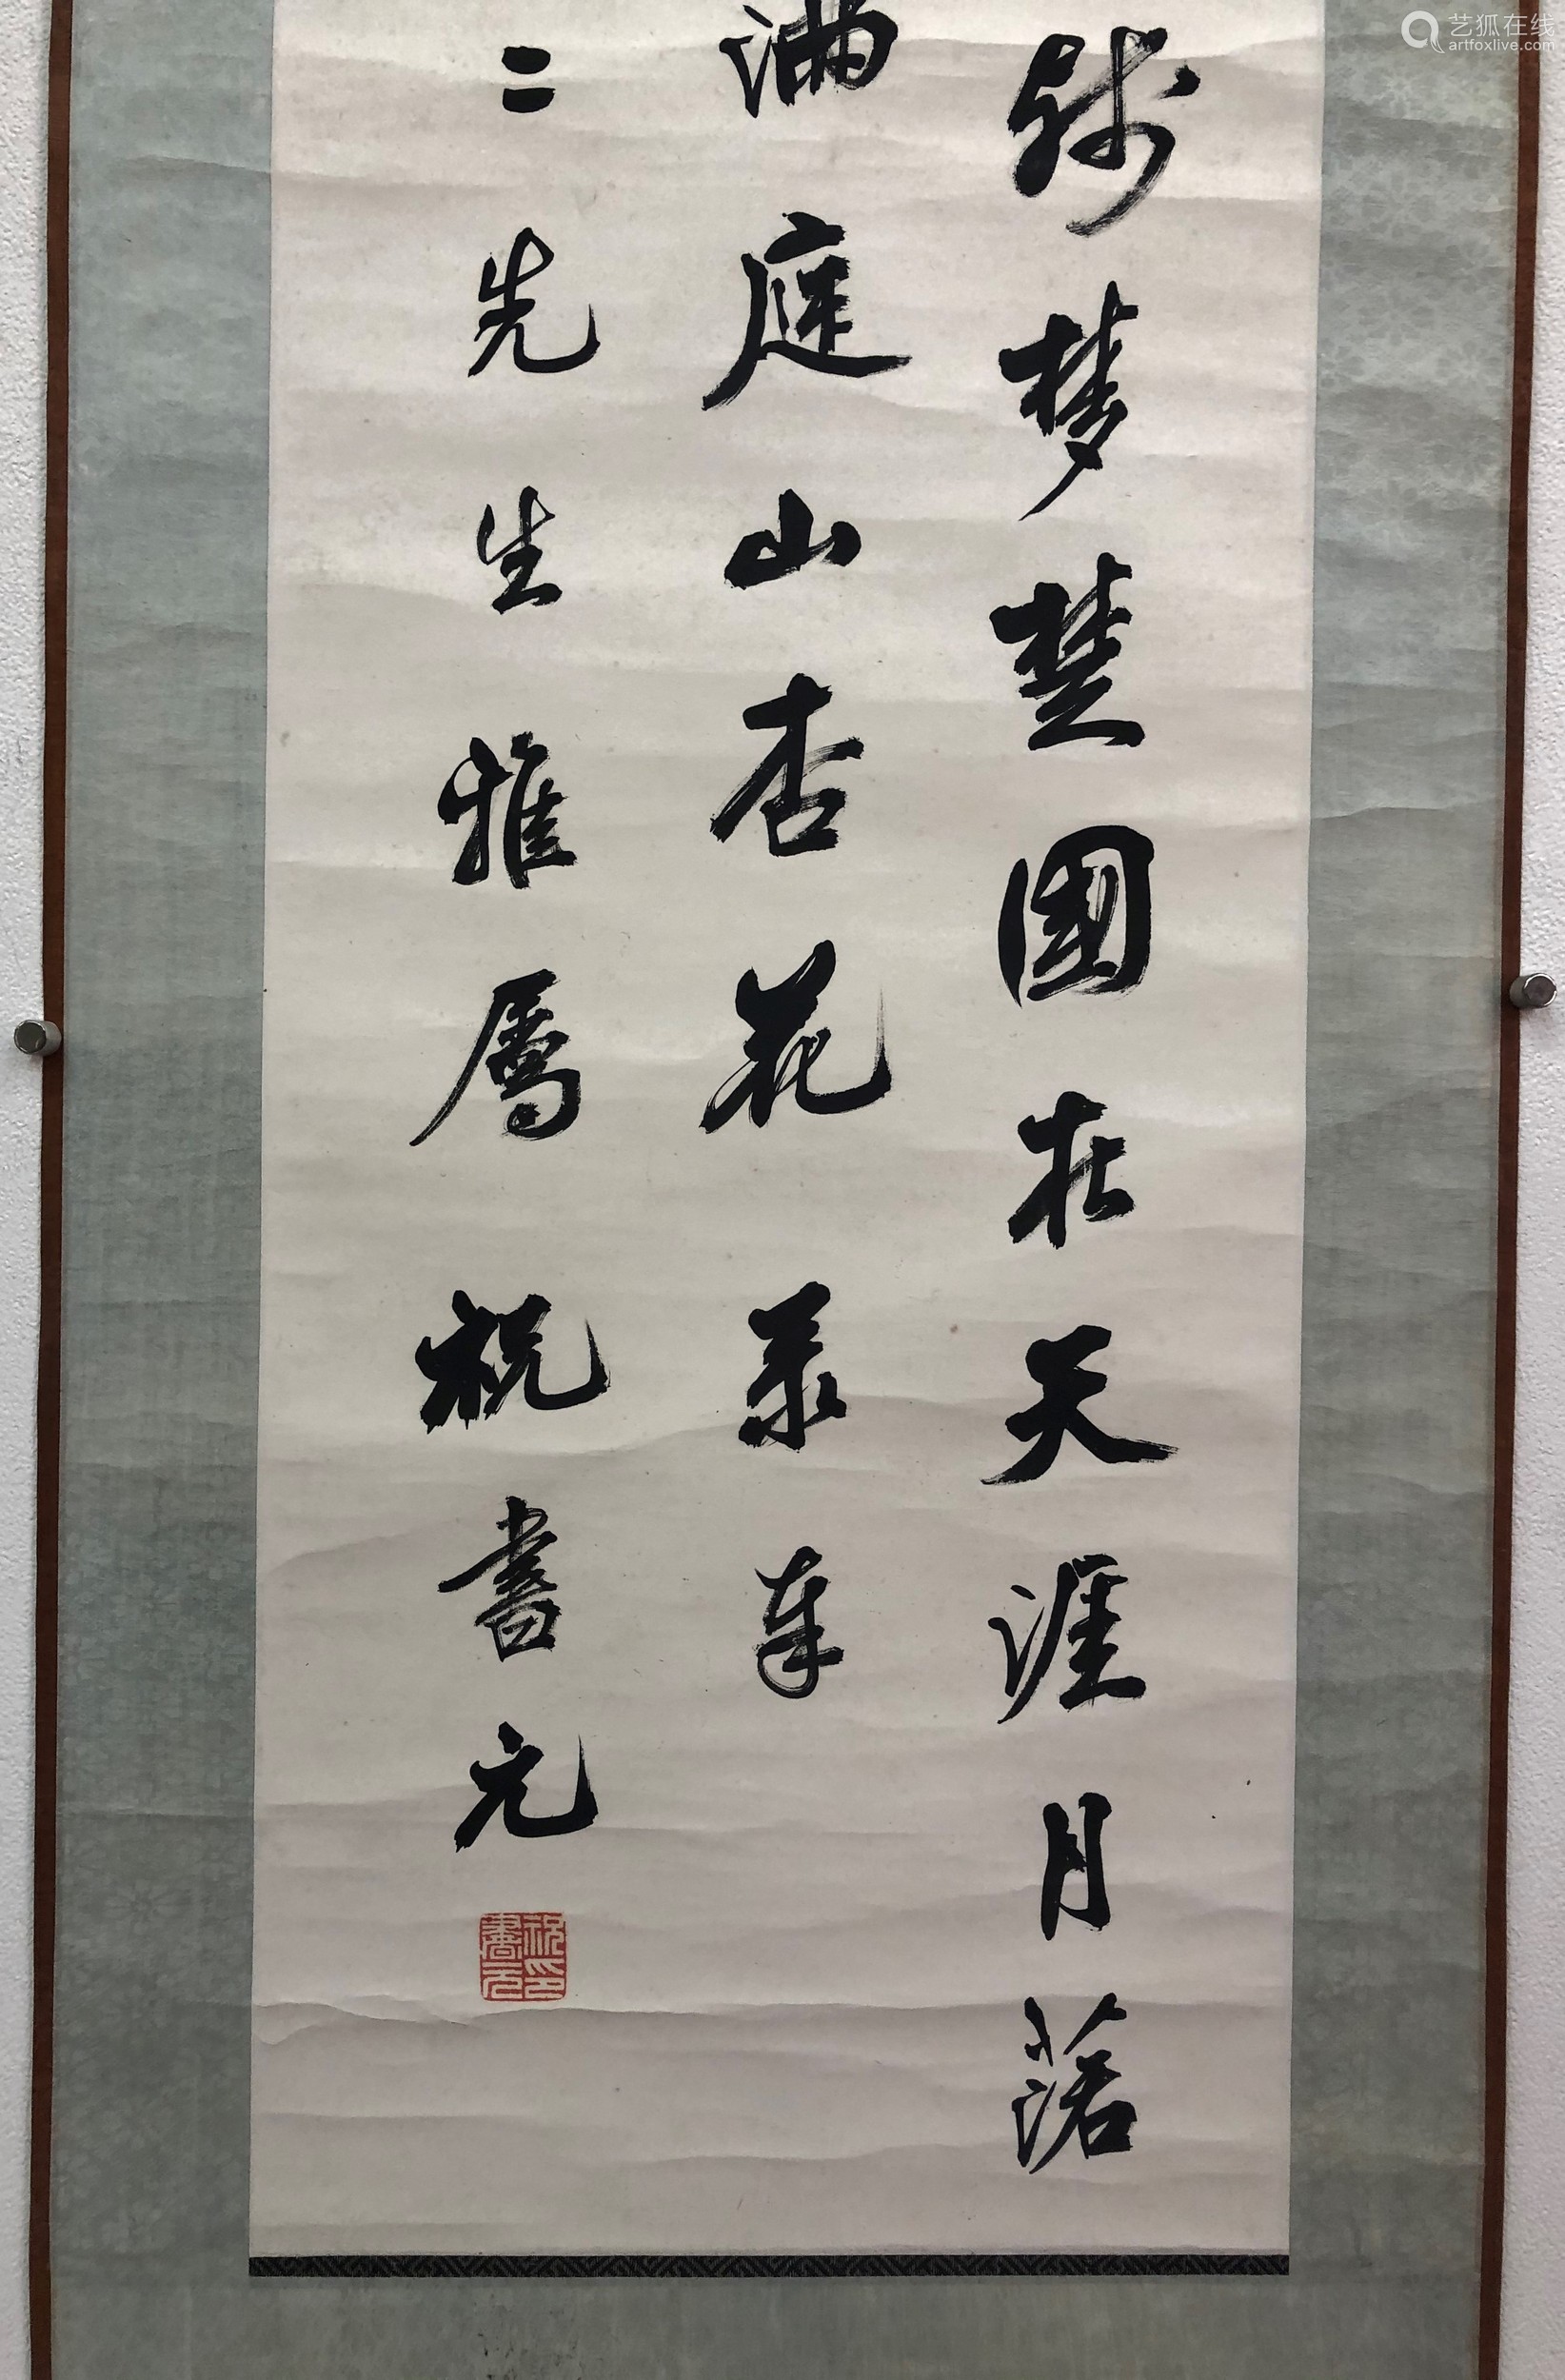 残梦楚國在天涯月落
滿庭山杏花录奉
二先生雅屬祝書元
祝印書元
艺狐在线
artfoxlive.com